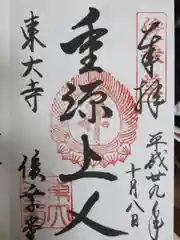 奉拝
平成廿九年
十月八日
重源上人
東大寺
俊乗堂